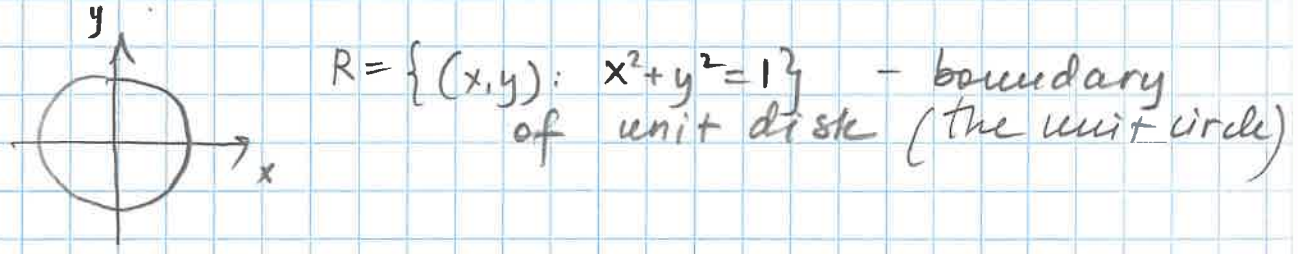 y
R = { (x,y): x²+y²=1} - boundary
of unit disk (the unit circle)
x